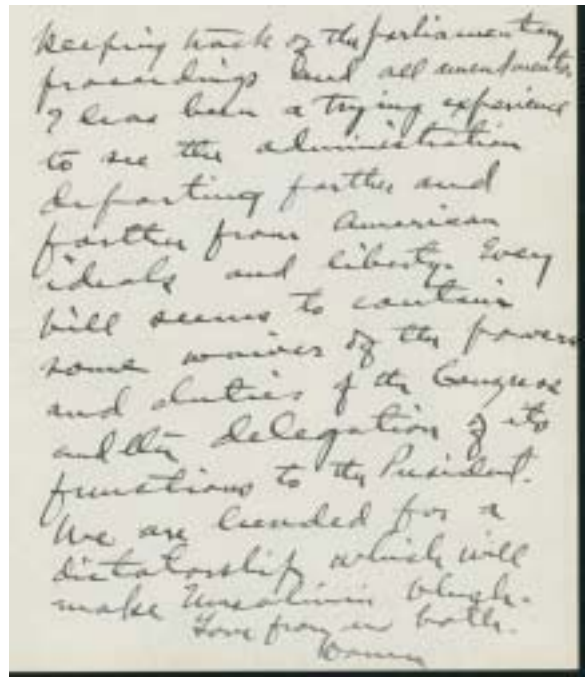 keeping track of the parliamentary
proceedings and all amendments.
It has been a trying experience
to see the administration
departing farther and
farther from American
ideals and liberty. Every
bill seems to contain
some waiver of the powers
and duties of the Congress
and the delegation of its
functions to the President.
We are headed for a
dictatorship which will
make Mussolini blush.
Love from us both.
Warren